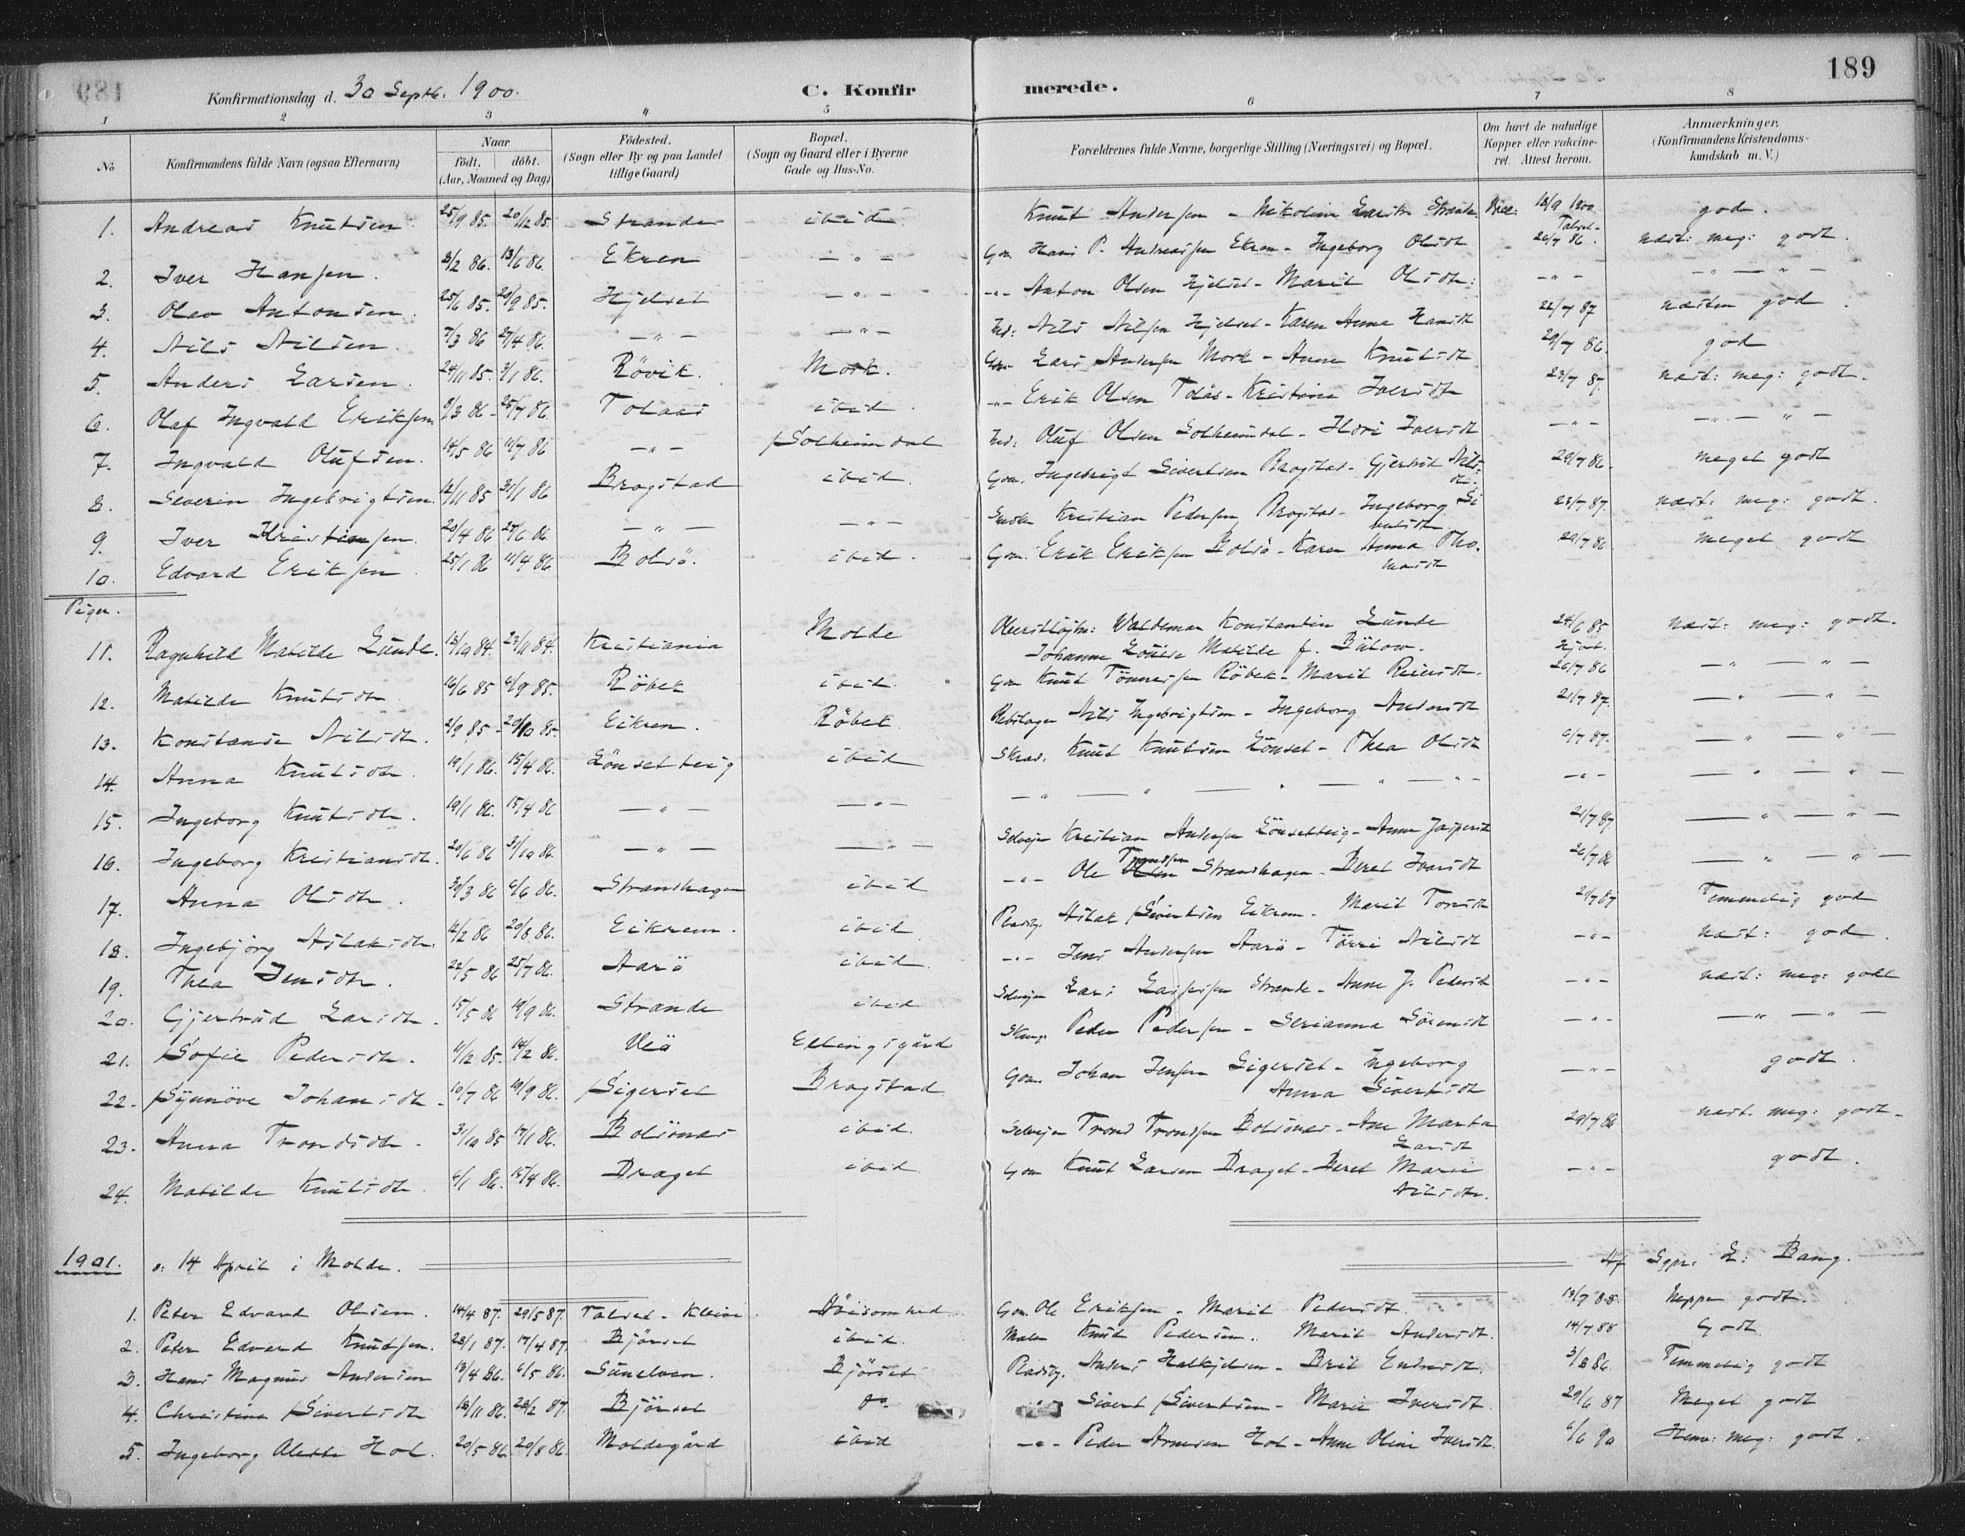 189
Konfirmationsdag d. 30 Septb. 1900. C. Konfirmerede.
1 2 3 4 5 6 7 8
No Konfirmandens fulde Navn (ogsaa Efternavn) Naar født, døbt. (Aar, Maaned og Dag) Fødested. (Sogn eller By og paa Landet tillige Gaard) Bopæl. (Sogn og Gaard eller i Byerne Gade og Hus-No. Forældrenes fulde Navne, borgerlige Stilling (Næringsvei) og Bopæl. Om havt de naturlige Kopper eller vakcineret. Attest herom. Anmærkninger, (Konfirmandens Kristendomskundskab m. V.)
1. Andreas Knutsen 25/9 85. 20/12 85. Strande ibid. Knut Andersen - Nikoline Larsdtr Strande 18/9 1900 god.
2. Iver Hansen. 2/2 86. 13/6 86. Ekren - " - Gm. Hans P. Andreassen Ekren - Ingeborg Olsdtr 26/7 86. næst: meg: godt.
3. Olav Antonsen. 25/6 85. 20/9 85. Hjelset - " - - " - Anton Olsen Hjelset - Marit Olsdtr: - " - - " - " -
4. Nils Nilsen. 7/3 86 27/4 86. - " - - " - Ind: Nils Nilsen Hjelset - Karen Anna Hansdtr 22/7 87 næsten god.
5. Anders Larsen. 24/11 85. 3/1 86. Røvik. Mork. Gm. Lars Andersen Mork - Anne Knutsdtr 29/7 86. god
6. Olaf Ingvald Eriksen 9/3 86 - 25/7 86 Tolaas ibid. - " - Erik Olsen Tolås - Kristine Iversdtr 23/7 87. næst: meg: godt.
7. Ingvald Olufsen. 14/5 86 11/7 86 - " - Solheimdal Ind: Oluf Olsen Solheimdal - Iversdtr - " - - " - " -
8. Severin Ingebrigtsen. 12/11 85 31/1 86 Bragstad ibid. Gm. Ingebrigt Sivertsen Bragstad - Gjertrud Nilsdtr. 29/7 86. meget godt
9. Iver Kristiansen. 20/4 86 27/6 86 - " - - " - Kristian Pedersen Bragstad - Ingeborg 23/7 87. næst: meg: godt.
10. Edvard Eriksen. 25/1 86 11/4 86 Bolsø. ibid. Gm. Erik Eriksen Bolsø - Karen Anna Thomasdtr 29/7 86. meget godt
Piger.
11. Ragnhild Matilde Lunde. 13/10 84. 23/11 84. Kristiania Molde Oberstløjtn: Waldemar Konstantin Lunde 24/6 85 næst: meg: godt.
Johanne Louise Matilde f. Bülow.
12. Matilde Knutsdtr 16/6 85 6/9 85. Røbek ibid. Gm Knut Tønnesen Røbek - Marit 26/7 86 - " - " -
13. Konstanse Nilsdtr. 2/9 85 - 20/10 85. Eikren. Røbek Nils Ingebrigtsen - Ingeborg Andersdtr 21/7 87. - " - " -
14. Anna Knutsdtr. 19/1 86. 15/4 86. Lønsetteig ibid Skræd. Knut Knutsen Lønset - Thea Olsdtr 6/7 87. - " - " -
15. Ingeborg Knutsdtr. 19/1 86. 15/4 86 - " - - " - - " - " - " - " - - " - - " - " -
16. Ingeborg Kristiansdtr. 20/6 86 31/10 86. - " - - " - Selvejer Kristian Andersen Lønsetteig - Anne Jespersdtr 21/7 87 - " - " -
17. Anna Olsdtr. 30/3 86 6/6 86. Strandhagen ibid - " - Ole Trondsen Strandhagen - Beret Iversdtr 26/7 86 - " - " -
18. Ingebjørg Aslaksdtr. 12/2 86 20/8 86. Eikrem. ibid. Pladsby. Aslak Sivertsen Eikrem - Marit 29/7 87 Temmelig god
19. Thea Jensdtr. 22/5 86 25/7 86. Aarø ibid. - " - Jens Andersen Aarø - Tørri Nilsdtr - " - næst: god.
20. Gjertrud Larsdtr. 15/5 86 19/9 86. Strande ibid Selvejer Lars Strande - Anne J. Pedersdtr - " - næst: meg: godt
21. Sofie Pedersdtr. 11/12 85. 14/2 86. Veø Ellingsgård Peder Pedersen - Serianna Sørensdtr - " - - " - " -
22. Synnøve Johansdtr. 10/7 86 19/9 86. Sigerset Bragstad Gm. Johan Jensen Sigerset - Ingeborg Anna Sivertsdtr - " - godt.
23. Anna Trondsdtr. 31/10 85 17/1 86. Bolsønes ibid. Selvejer Trond Trondsen Bolsønes - Ane Marta Larsdtr 29/7 86 næst. meg: godt.
24. Matilde Knutsdtr. 6/1 86. 15/4 86. Draget ibid. Gm Knut Larsen Draget - Beret Marie Nilsdtr. - " - godt.
1901. 14 April i Molde. Af Sgpr. Bang.
1. Peter Edvard Olsen. 14/4 87. 29/5 87. Talset - Kleive Gm. Ole Eriksen - Marit Pedersdtr. 13/7 88. Neppe godt.
2. Peter Edvard Knudsen. 28/1 87. 17/4 87. Bjørset ibid. Maler Knud Pedersen. Marit Andersdtr. 14/7 88 Godt.
3. Hans Magnus Andersen 13/4 86. 6/5 86. Sunelven. Bjørset Pladsby. Anders Halkjelsen - Brit Endresdtr. 3/8 86. Temmelig godt
4. Christine Sivertsdtr 18/11 86. 28/2 87. Bjørset do Sivert Sivertsen - Marie Iversdtr. 29/6 87 Meget godt
5. Ingeborg Alette Hol. 20/5 86. 20/8 86. Moldegård ibid - " - Peder Arnesen Hol - Anne Oline Iversdtr. 6/6 90 Henv: meg: godt.